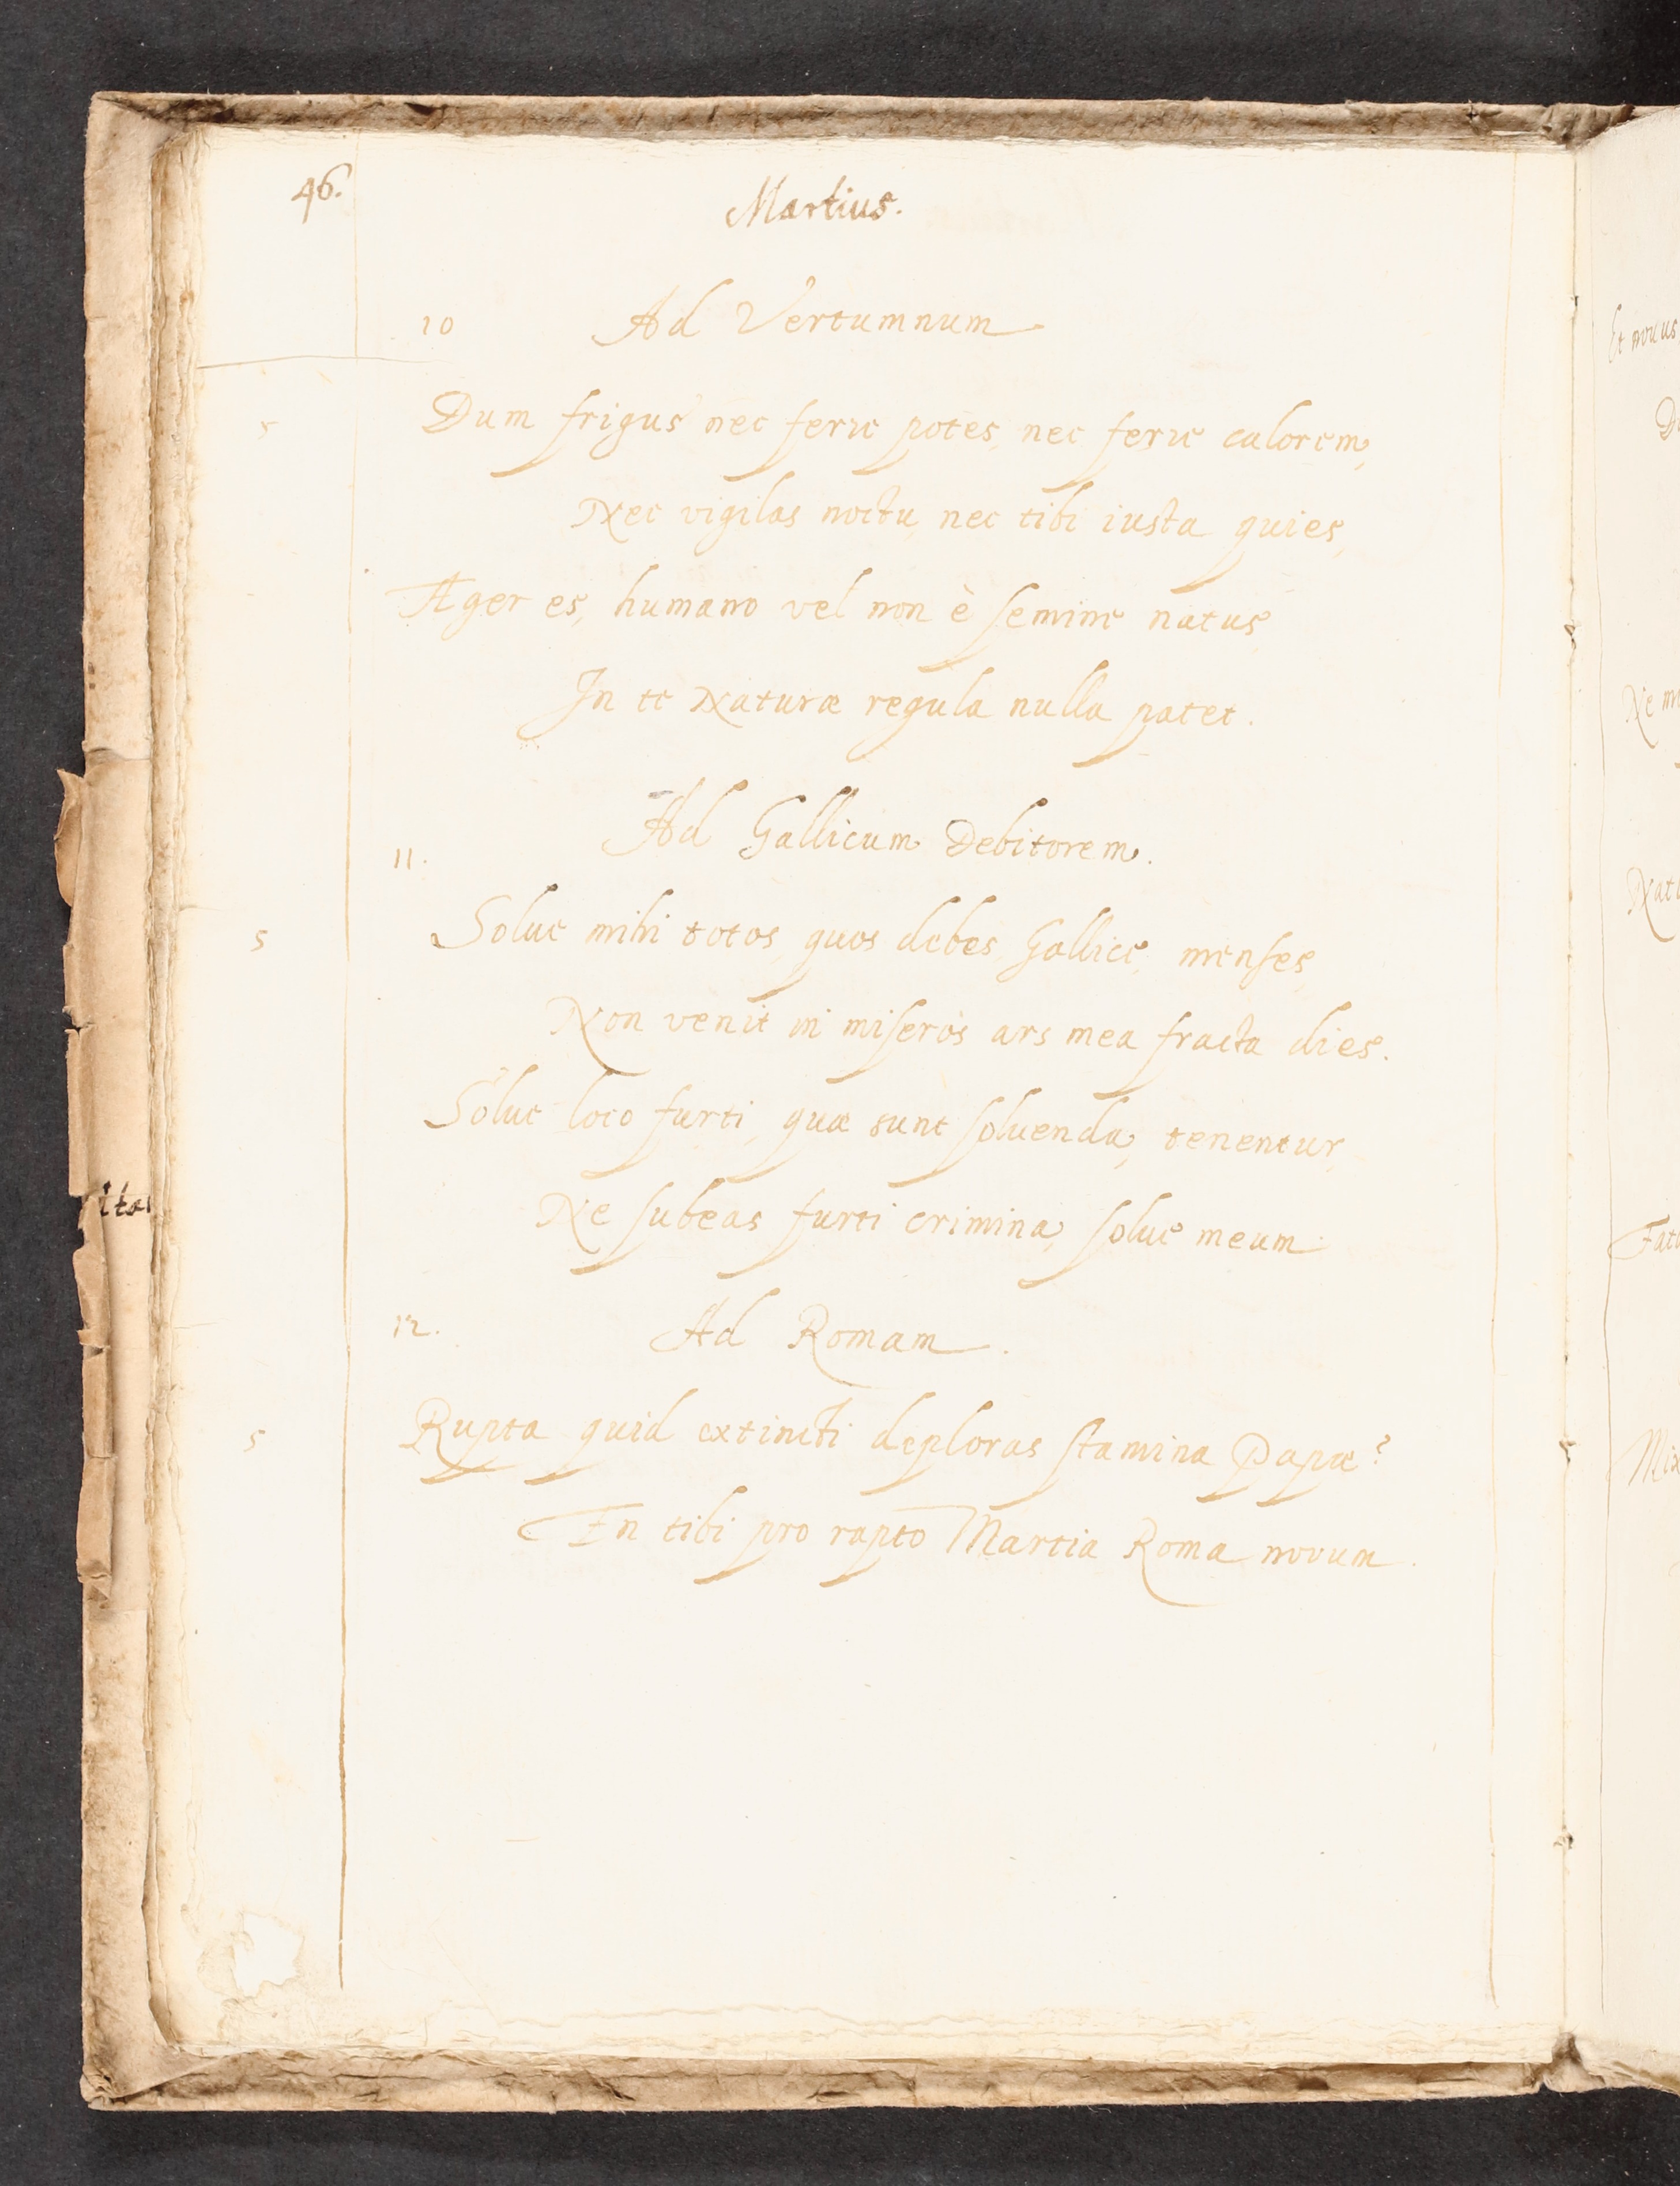 46.
Martius.
10 Ad Vertumnum
5 Dum frigus nec ferre potes, nec ferre calorem,
Nec vigilas noctu, nec tibi iusta quies,
Æger es, humano vel non è semine natus,
In te Naturæ regula nulla patet.
11. Ad Gallicum Debitorem.
5 Solue mihi totos, quos debes, Gallice, menses,
Non venit in miseros ars mea fracta dies.
Solue loco furti, quæ sunt soluenda, tenentur,
Ne subeas furti crimina, solue meum.
12. Ad Romam.
5 Rupta quid extincti deploras stamina Papæ?
En tibi pro rapto Martia Roma novum.
Et novus
Ne
Fatu